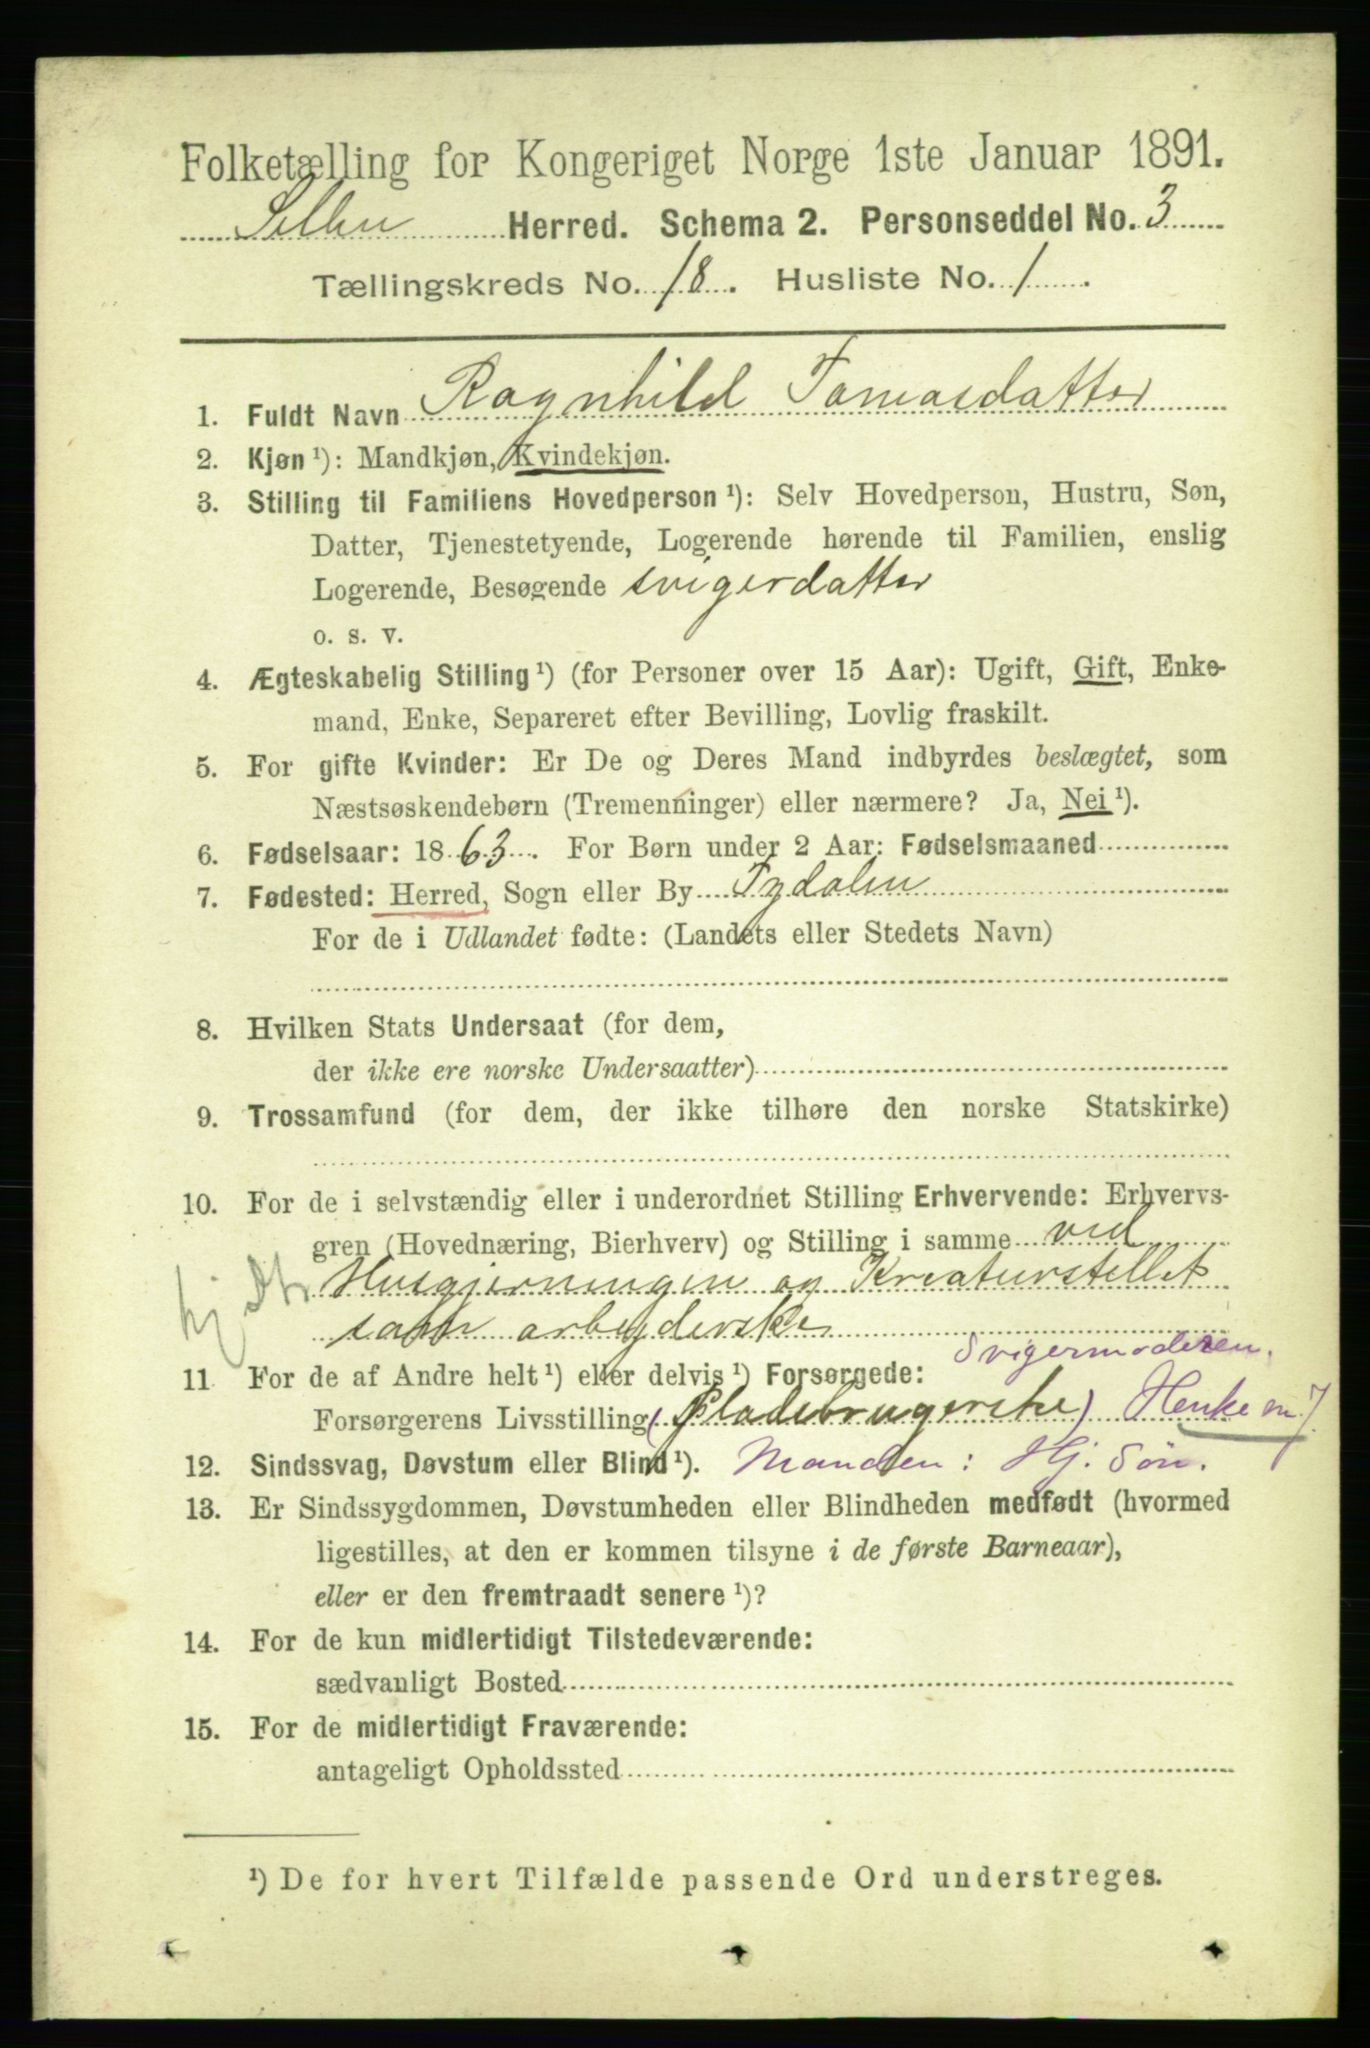 Folketælling for Kongeriget Norge 1ste Januar 1891.
Selbu Herred. Schema 2. Personseddel No. 3
Tællingskreds No. 18. Husliste No. 1.
1. Fuldt Navn Ragnhild Tomasdatter
2. Kjøn ¹): Mandkjøn, Kvindekjøn.
3. Stilling til Familiens Hovedperson ¹): Selv Hovedperson, Hustru, Søn,
Datter, Tjenestetyende, Logerende hørende til Familien, enslig
Logerende, Besøgende svigerdatter
o. s. v.
4. Ægteskabelig Stilling ¹) (for Personer over 15 Aar): Ugift, Gift, Enke-
mand, Enke, Separeret efter Bevilling, Lovlig fraskilt.
5. For gifte Kvinder: Er De og Deres Mand indbyrdes beslægtet, som
Næstsøskendebørn (Tremenninger) eller nærmere? Ja, Nei ¹).
6. Fødselsaar: 1863. For Børn under 2 Aar: Fødselsmaaned
7. Fødested: Herred, Sogn eller By Tydalen
For de i Udlandet fødte: (Landets eller Stedets Navn)
8. Hvilken Stats Undersaat (for dem,
der ikke ere norske Undersaatter)
9. Trossamfund (for dem, der ikke tilhøre den norske Statskirke)
10. For de i selvstændig eller i underordnet Stilling Erhvervende: Erhvervs-
gren (Hovednæring, Bierhverv) og Stilling i samme ved
Husgjerningen og Kreaturstellet
som arbejderske
Svigermoderen.
11 For de af Andre helt ¹) eller delvis ¹) Forsørgede:
Forsørgerens Livsstilling (Pladsbrugerske)
12. Sindssvag, Døvstum eller Blind ¹). Manden: Hj. Søn.
13. Er Sindssygdommen, Døvstumheden eller Blindheden medfødt (hvormed
ligestilles, at den er kommen tilsyne i de første Barneaar),
eller er den fremtraadt senere ¹)?
14. For de kun midlertidigt Tilstedeværende:
sædvanligt Bosted
15. For de midlertidigt Fraværende:
antageligt Opholdssted
¹) De for hvert Tilfælde passende Ord understreges.